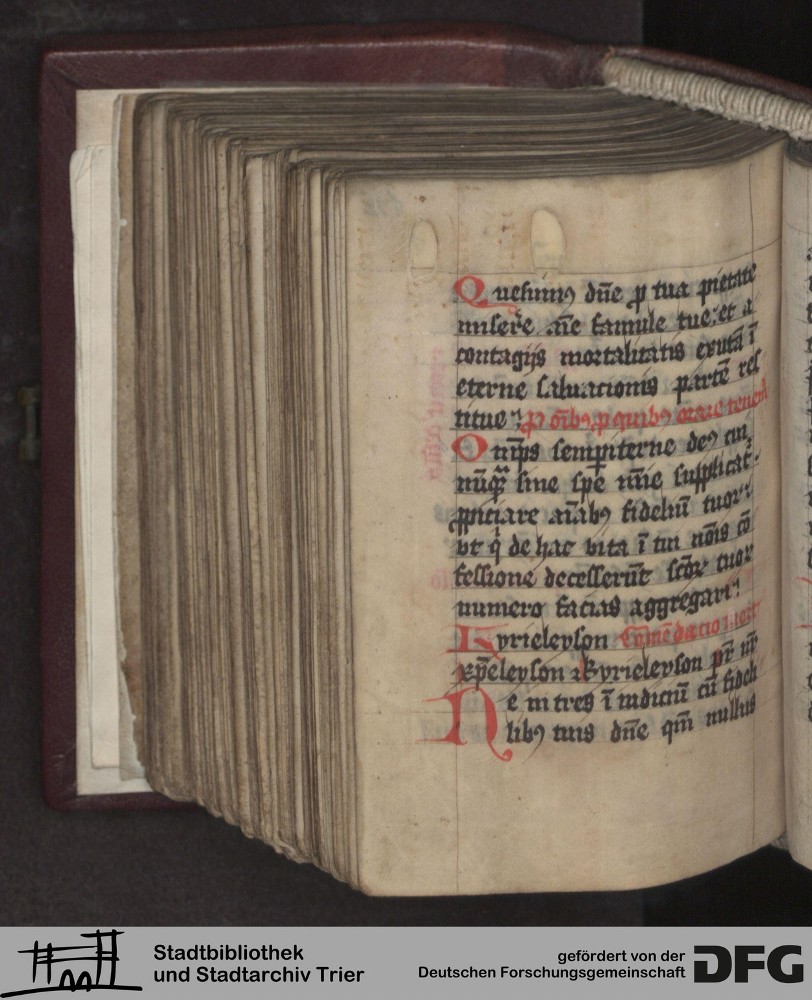 Quesum9 dñe p tua pietate
miserẽ aĩe famule tue: et a
contagijs mortalitatis exutã ĩ
eterne saluacionis partẽ res
titue: P oĩb9 p quib9 orare tenem̃
Omps sempiterne de9 cui
nũqȝ sine spe mĩe supplicat᷒
ppiciare aĩab9 fideliũ tuoꝝ
vt q̇ de hac vita ĩ tui nõis cõ
fessione decesserũt scõꝝ tuoꝝ
numero facias aggregari:
Kyrieleyson Cõmẽdacio
xp̃eleyson Kyrieleyson pr̃ nr̃
Ne intres ĩ iudiciũ cũ fideli
lib9 tuis dñe qm̃ nullus
Stadtbibliothek
und Stadtarchiv Trier
gefördert von der
Deutschen Forschungsgemeinschaft
DFG